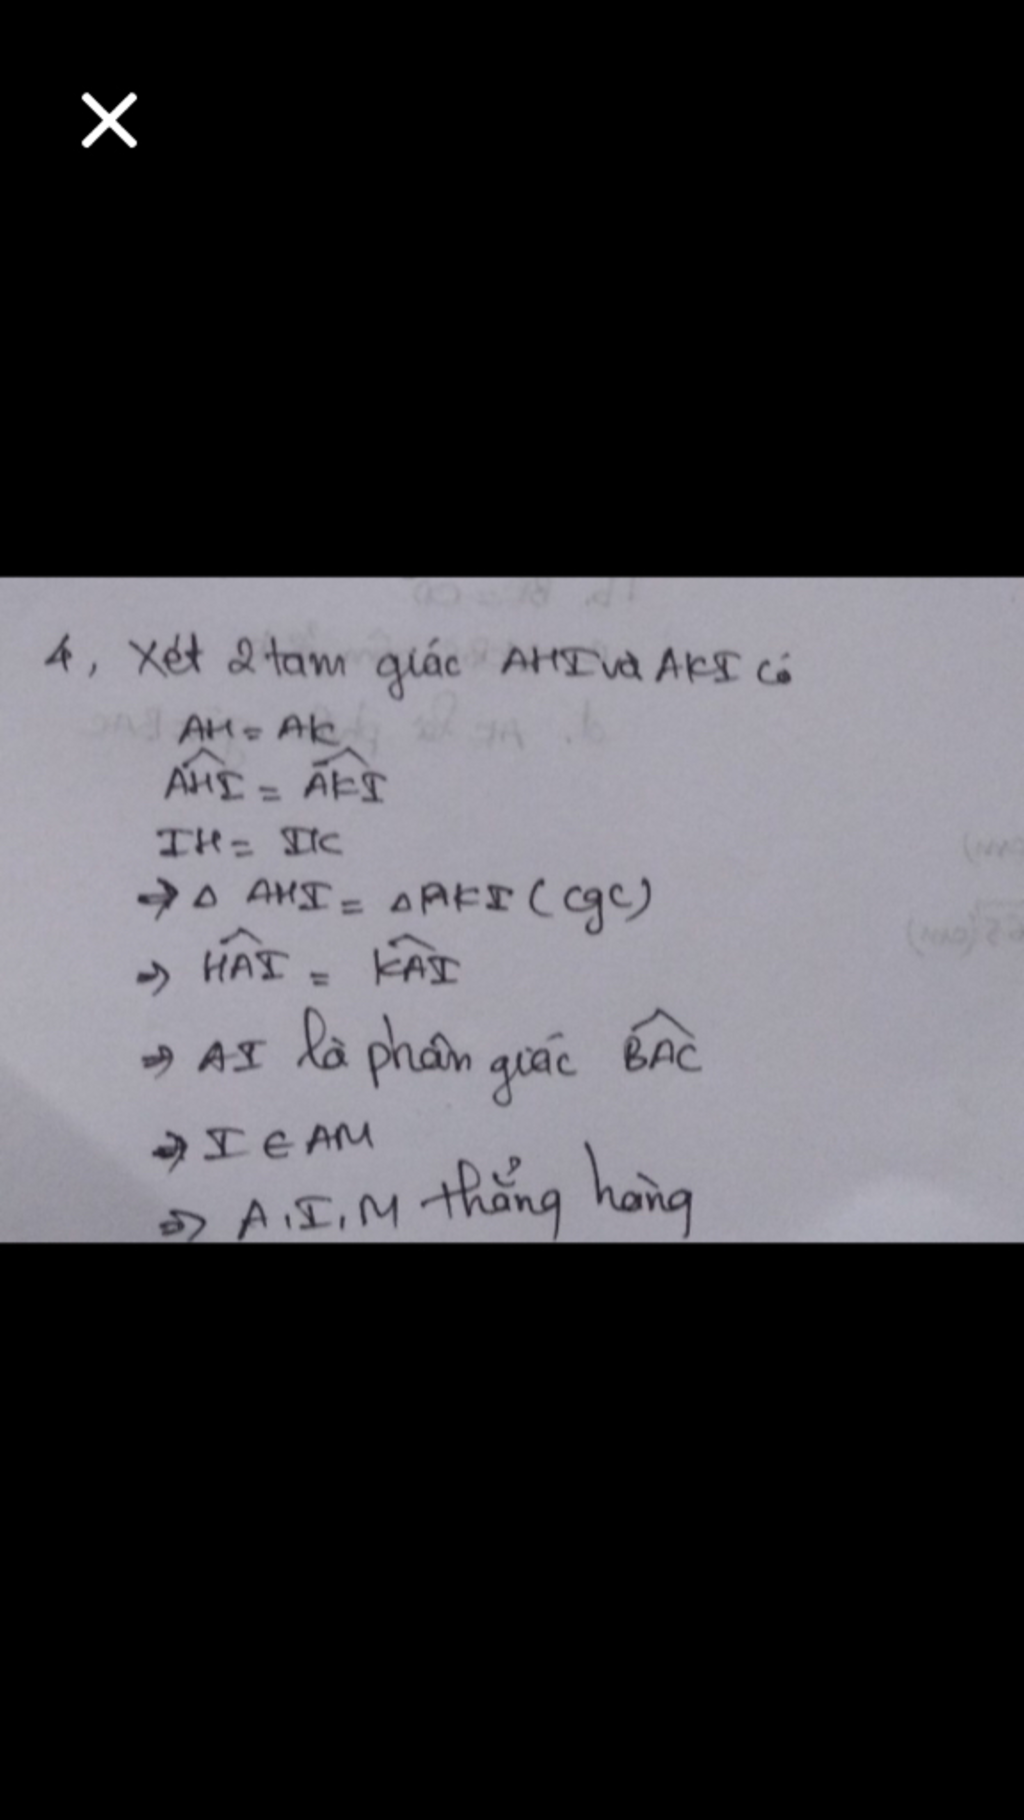 4, Xét 2 tam giác AHI và AKI có
AH = AK
AHI = AKI
IH = IK
=> △ AHI = △AKI (cgc)
=> HAI = KAI
=> AI là phân giác BAC
=> I ∈ AM
=> A, I, M thẳng hàng